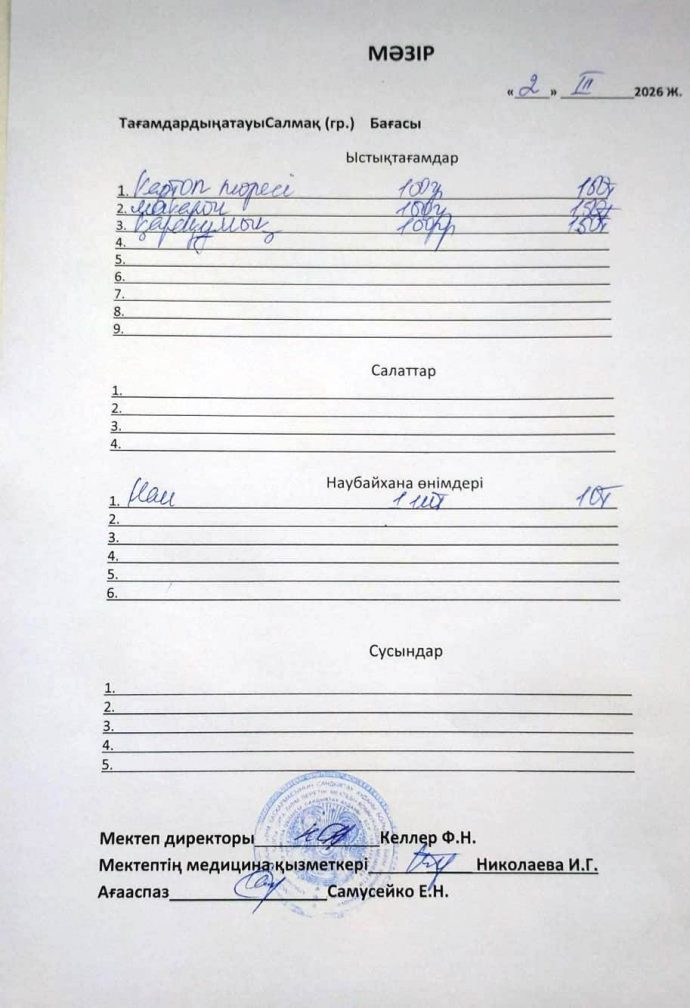 МӘЗІР
« 2 » III 2026 Ж.
ТағамдардыңатауыСалмақ (гр.) Бағасы
Ыстықтағамдар
1. Картоп пюресі 100г 150т
2. макарон 100г 150т
3. Қарақұмық 100гр 150т
4.
5.
6.
7.
8.
9.
Салаттар
1.
2.
3.
4.
Наубайхана өнімдері
1. Нан 1 шт 10т
2.
3.
4.
5.
6.
Сусындар
1.
2.
3.
4.
5.
Мектеп директоры Келлер Ф.Н.
Мектептің медицина қызметкері Николаева И.Г.
Ағааспаз Самусейко Е.Н.